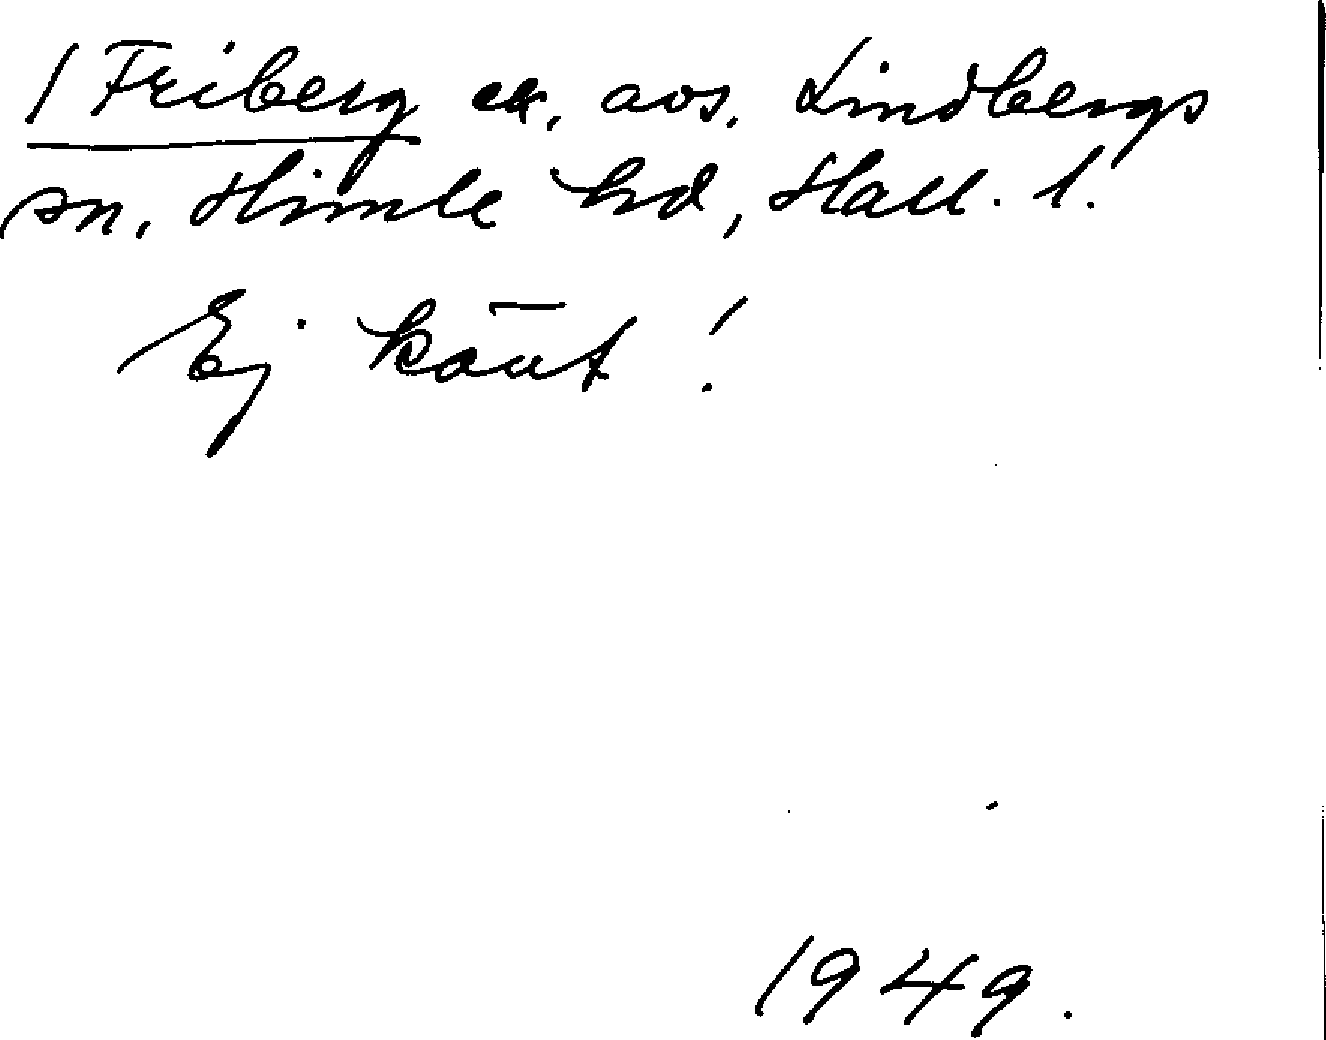 1 Friberg ex. avs. Lindbergs
sn. Himle hd, Hall. l.
Ej känt!
1949.